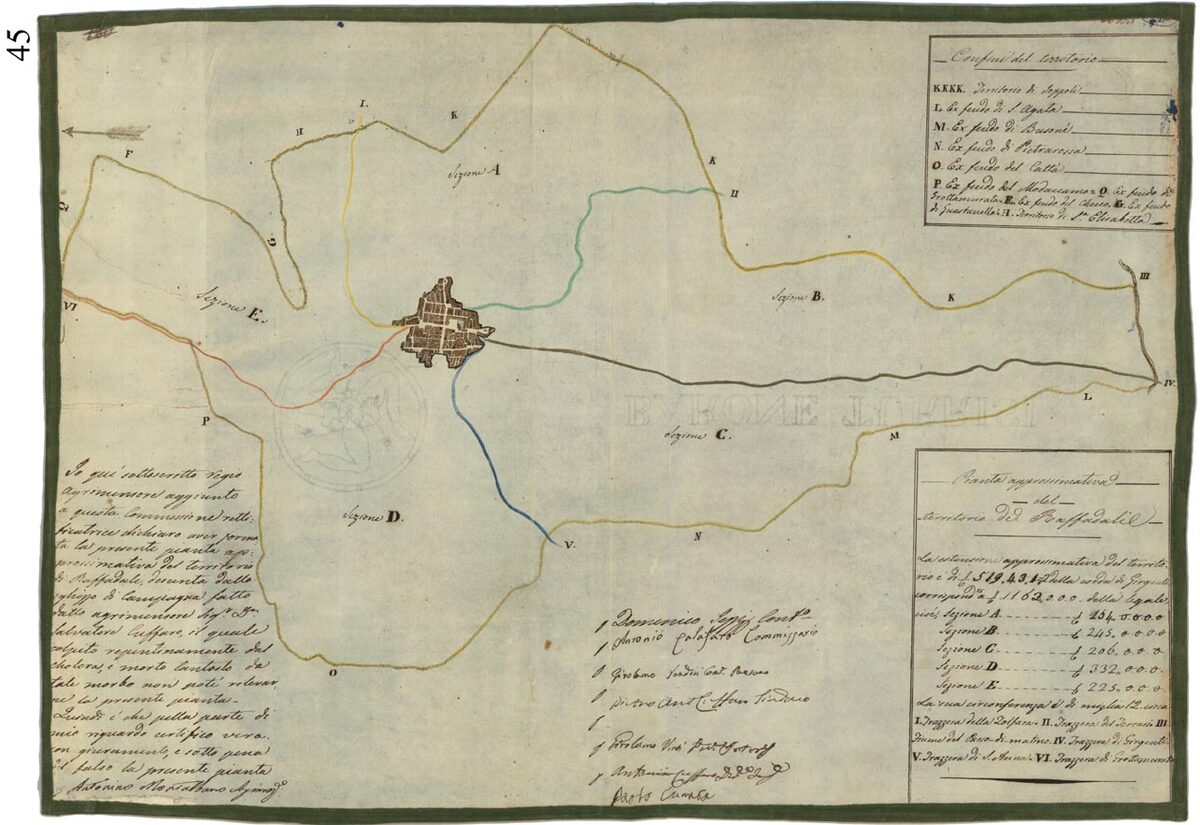 45
Confini del territorio
KKKK. Territorio di Joppoli
L. Ex feudo di S. Agata
M. Ex feudo di Busoné
N. Ex feudo di Pietrarossa
O. Ex feudo del Cattà
P. Ex feudo del Modaccamo = Q. Ex feudo di
Grottamurata. Ex feudo del Ex feudo
di Guastanella. H. Territorio di S.ta Elisabetta
I.
K
H
F
Sezione A
K
II
Q
G
III
Sezione E.
Sezione B.
K
VI
IV.
L
P
Sezione C.
M
Sezione D.
N
V.
O
Io qui sottoscritto regio
agrimensore aggiunto
a questa Commessione retti-
ficatrice dichiaro aver forma-
ta la presente pianta ap-
prossimativa del territorio
di Raffadali, desunta dallo
schizzo di Campagna fatto
dallo agrimensore Sig.r D.n
Salvatore Cuffaro, il quale
colpito repentinamente dal
cholera, e morto tantosto da
tale morbo non poté rilevar-
ne la presente pianta.
Quindi è che pella parte di
mio riguardo certifico vera
con giuramento, e sotto pena
di falso la presente pianta
Antonino
Domenico
Antonio Commissario
Girolamo
Pietro Sindaco
Girolamo
Antonino
Pianta approssimativa
del
territorio di Raffadali
La estensione approssimativa del territo-
rio è di 519.4.3.1.2 della corda di Girgenti
corrispond.e 1162.0.0.0. della legale,
cioè, Sezione A 154. 0.0.0.0
Sezione B 245. 0.0.0.0
Sezione C 206. 0.0.0
Sezione D 332. 0.0.0
Sezione E 225. 0.0.0
La sua circonferenza è di miglia 12. circa
I. Trazzera della Zolfara. II. Trazzera del III.
Fiume del Passo di IV. Trazzera di Girgenti
V. Trazzera di S. Anna. VI. Trazzera di Grottamurata